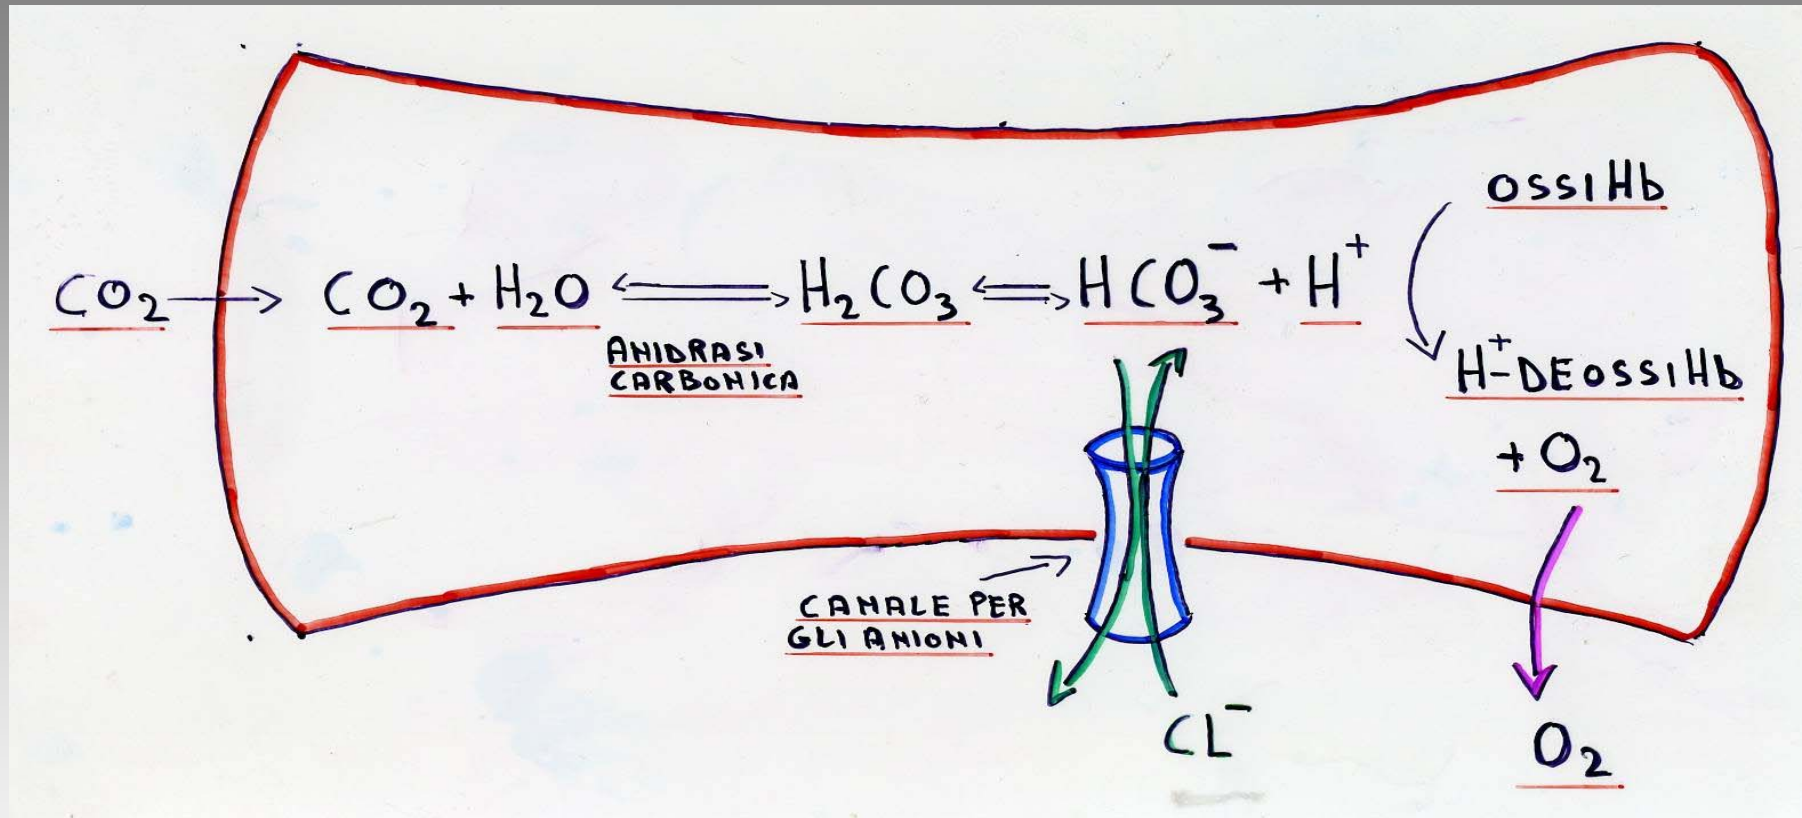 OSSIHb
CO₂ → CO₂ + H₂O ⇌ H₂CO₃ ⇌ HCO₃⁻ + H⁺
ANIDRASI
CARBONICA
H⁺-DEOSSIHb
+ O₂
CANALE PER
GLI ANIONI
CL⁻
O₂